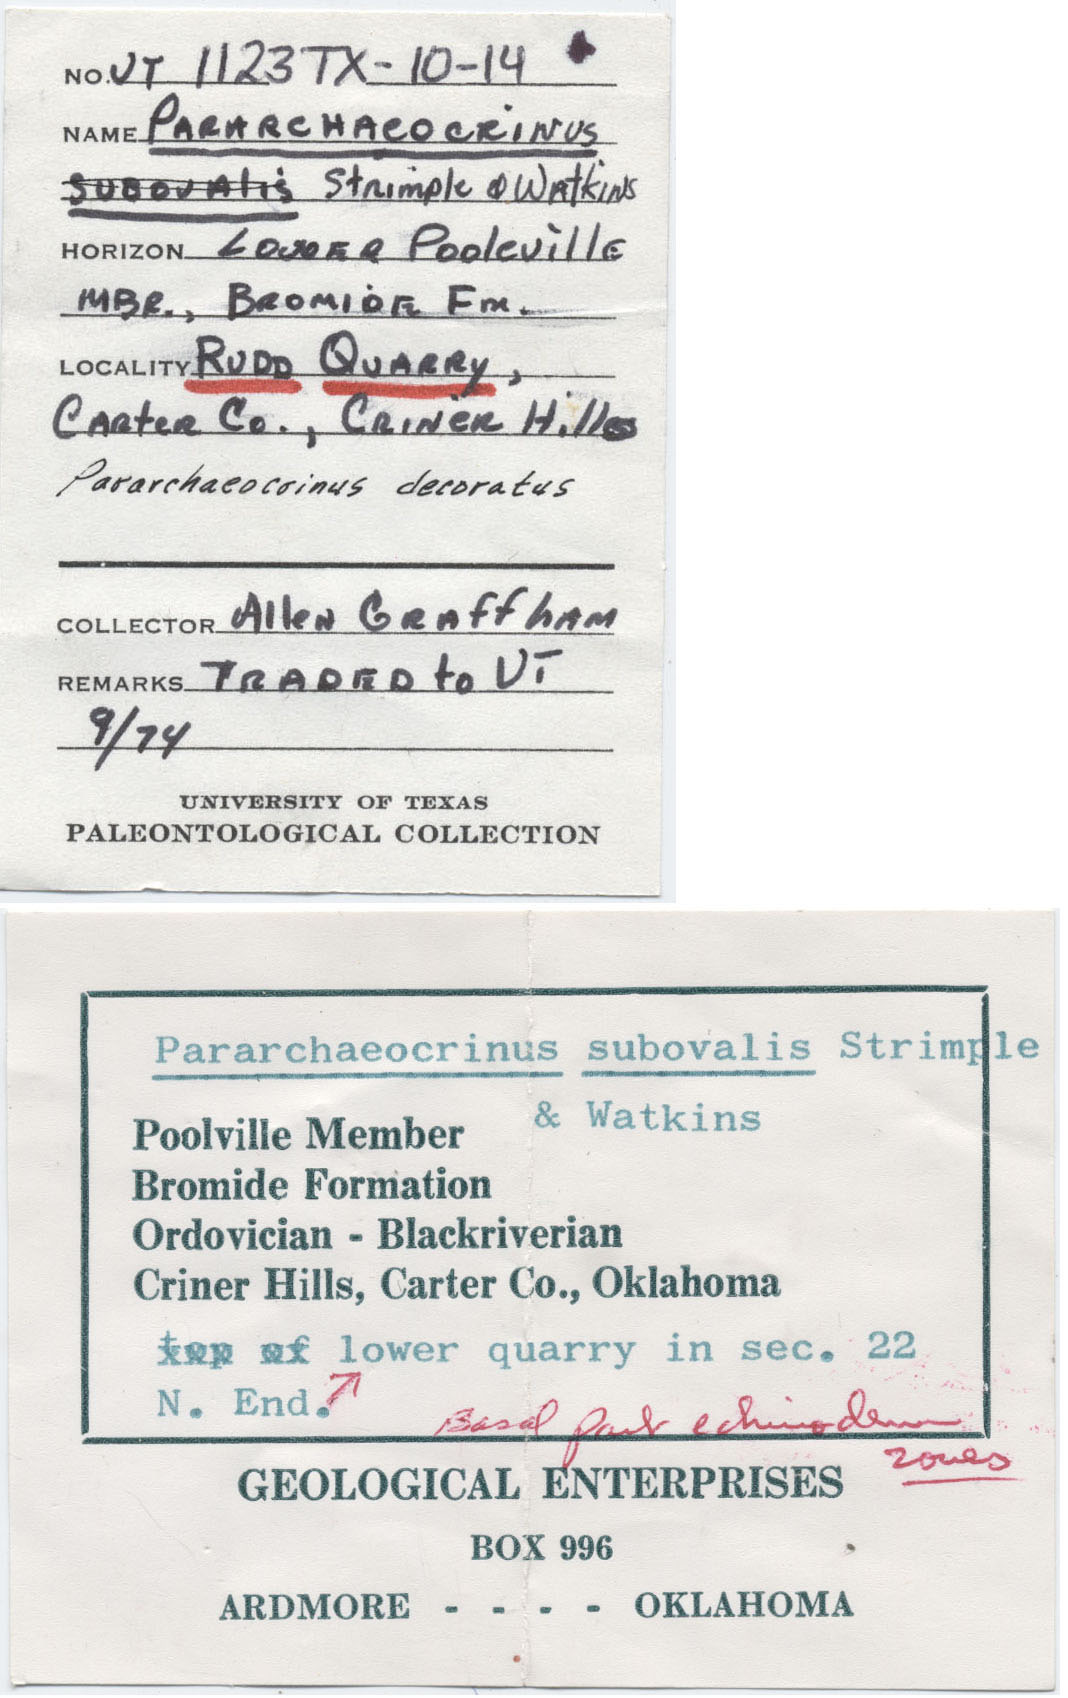 NO. UT 1123TX-10-14
NAME PARARCHAEOCRINUS
SUBOVALIS Strimple & Watkins
HORIZON LOWER Pooleville
MBR., BROMIDE Fm.
LOCALITY RUDD QUARRY,
CARTER Co., CRINER Hills
Pararchaeocrinus decoratus
COLLECTOR Allen GRAffhAM
REMARKS TRADED to UT
9/74
UNIVERSITY OF TEXAS
PALEONTOLOGICAL COLLECTION
Pararchaeocrinus subovalis Strimple
& Watkins
Poolville Member
Bromide Formation
Ordovician - Blackriverian
Criner Hills, Carter Co., Oklahoma
top of lower quarry in sec. 22
N. End.
Basal part echinoderm
zones
GEOLOGICAL ENTERPRISES
BOX 996
ARDMORE - - - - OKLAHOMA